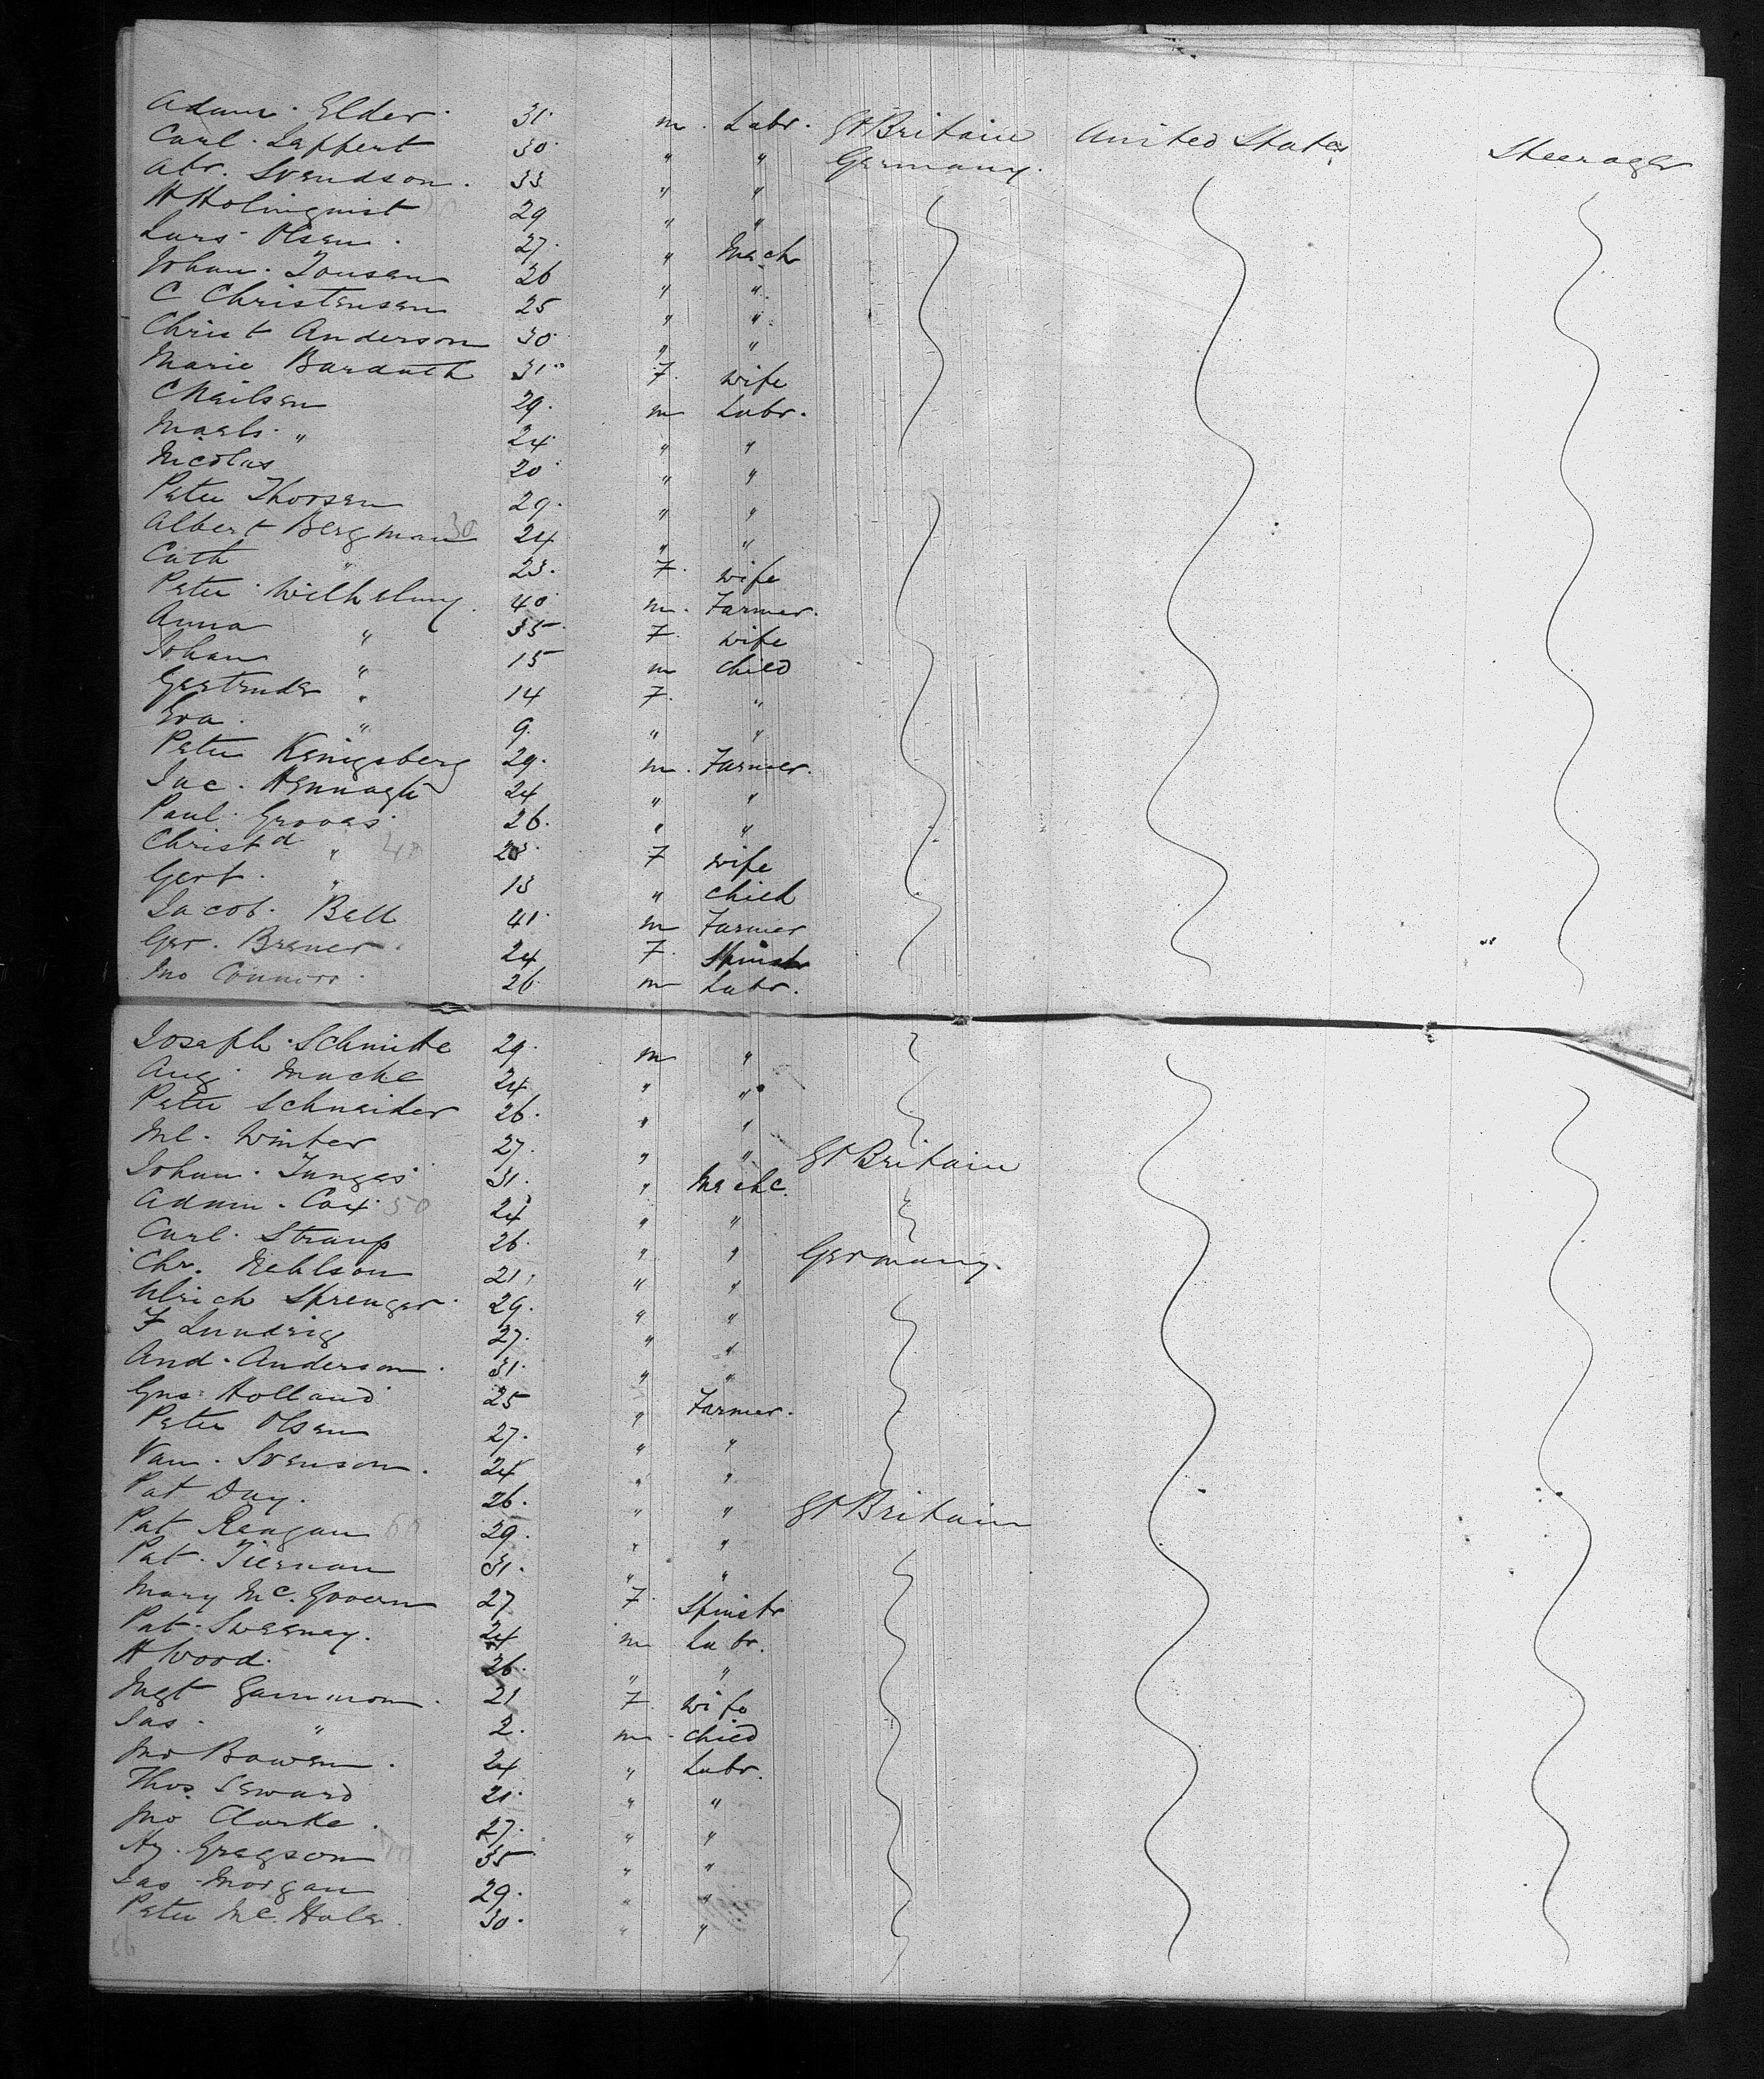 Adam Elder 31 m Labr. Gt Britain United States Steerage
Carl Leppert 30 " " Germany
Abr. Svendson 33 " "
H Holmquist 29 " "
Lars Olsen 27 " Mach
Johan Jonsen 26 " "
C Christensen 25 " "
Christ Anderson 30 " "
Marie Barduth 31 F wife
C Neilsen 29 m Labr.
Maels " 24 " "
Nicolas 20 " "
Peter Thorsen 29 " "
Albert Bergman 30 24 " "
Cath " 23 F wife
Peter Wilhelmy 40 m Farmer
Anna " 35 F wife
Johan " 15 m child
Gertrude " 14 F "
Eva " 9 " "
Peter Kenigsberg 29 m Farmer
Jac. Hennagh 24 " "
Paul Groves 26 " "
Christd " 40 23 F wife
Gert. " 13 " child
Jacob Bell 41 m Farmer
Ger. Brener 24 F Spinstr
Jno Connior 26 m Labr.
Joseph Schmitte 29 m "
Aug. Mache 24 " "
Peter Schneider 26 " "
Ml. Winter 27 " " Gt Britain
Johan Junges 31 " Mache
Adam Cox 50 24 " "
Carl Straup 26 " " Germany
Chr. Nehlson 21 " "
Ulrich Sprenger 29 " "
F Lundrig 27 " "
And. Anderson 31 " "
Gus. Holland 25 " Farmer
Peter Olsen 27 " "
Van. Svenson 24 " "
Pat Day 26 " " Gt Britain
Pat Reagan 60 29 " "
Pat Tiernan 31 " "
Mary McGovern 27 F Spinstr
Pat Sweeney 24 m Labr.
H Wood 26 " "
Mgt Gammon 21 F wife
Jas " 2 m child
Jno Bowen 24 " Labr.
Thos Seward 21 " "
Jno Clarke 27 " "
Hy. Gregson 70 35 " "
Jas Morgan 29 " "
Peter McHale 30 " "